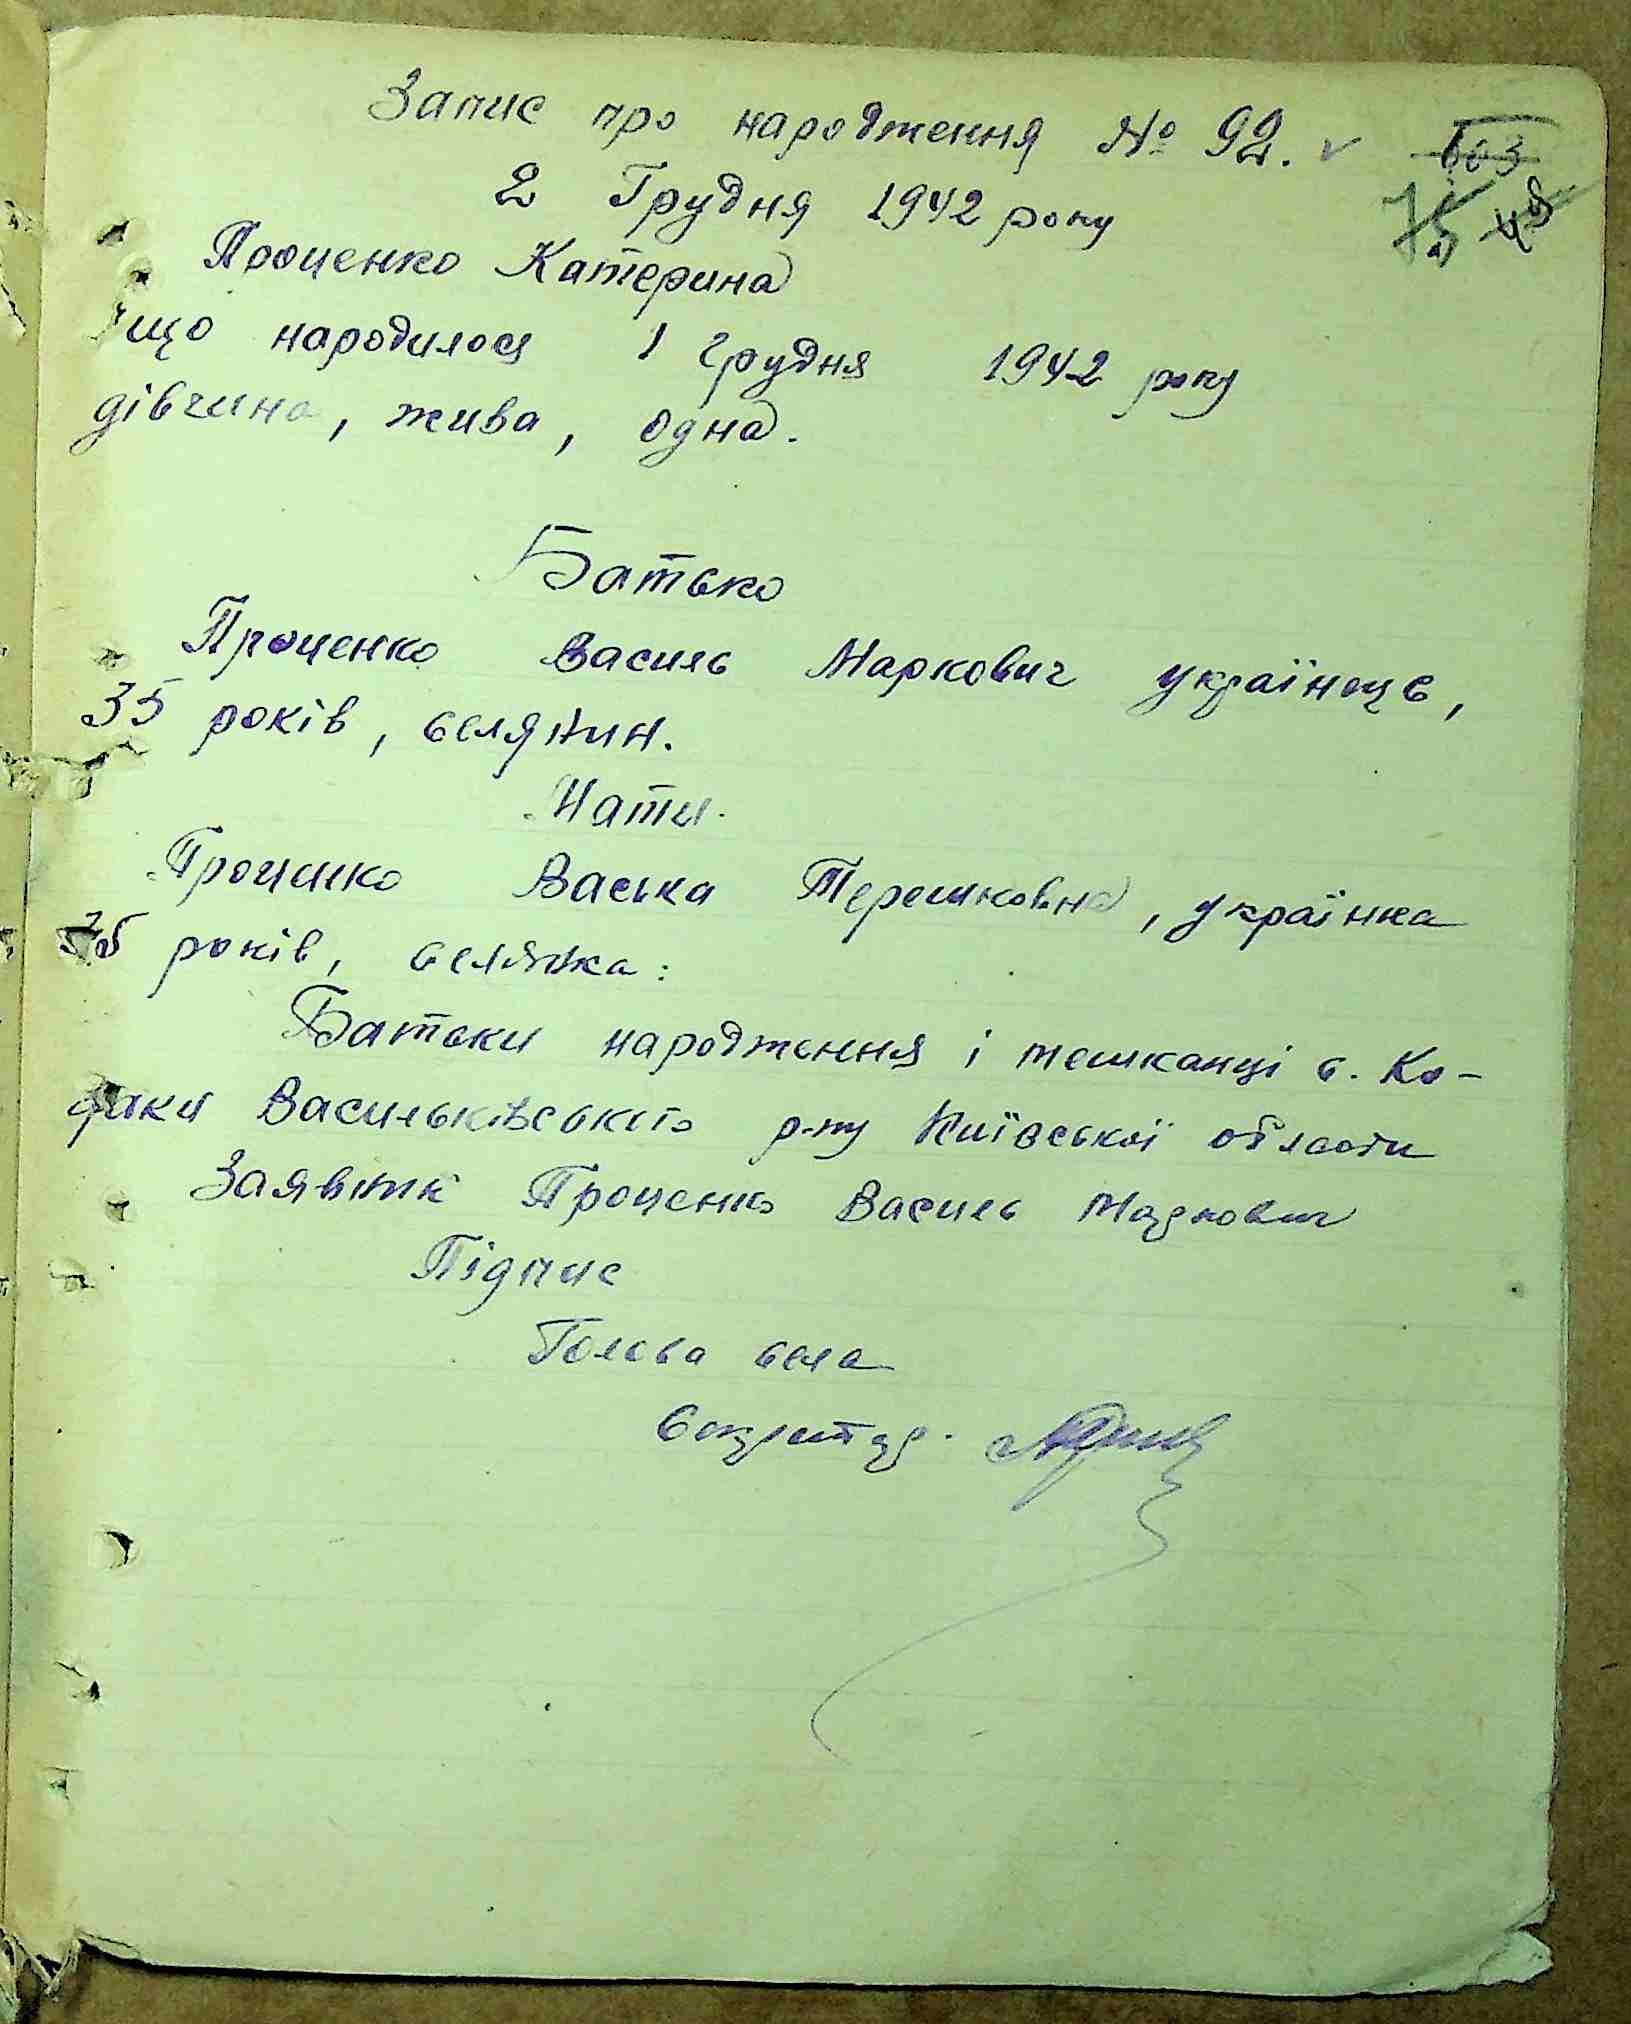 Запис про народження № 92.
603
2 Грудня 1942 року
Проценко Катерина
що народилося 1 грудня 1942 року
дівчина, жива, одна.
Батько
Проценко Василь Маркович українець,
35 років, селянин.
Мати
Проценко Васька Терешковна, українка
35 років, селянка.
Батьки народження і мешканці с. Ко-
даки Васильківського р-ну Київської области
Заявник Проценко Василь Маркович
Підпис
Голова села
Секретар.